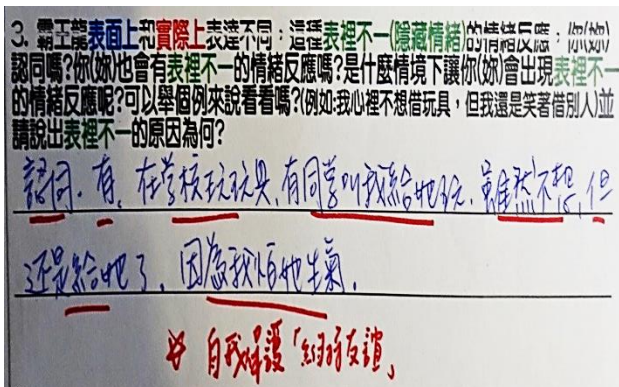 3. 霸王龍表面上和實際上表達不同；這種表裡不一(隱藏情緒)的情緒反應；你(妳)
認同嗎?你(妳)也會有表裡不一的情緒反應嗎?是什麼情境下讓你(妳)會出現表裡不一
的情緒反應呢?可以舉個例來說看看嗎?(例如:我心裡不想借玩具，但我還是笑著借別人)並
請說出表裡不一的原因為何?
認同. 有, 在学校玩玩具, 有同学叫我給她玩. 雖然不想, 但
还是給她了, 因為我怕她生氣.
自我保護「 友誼」